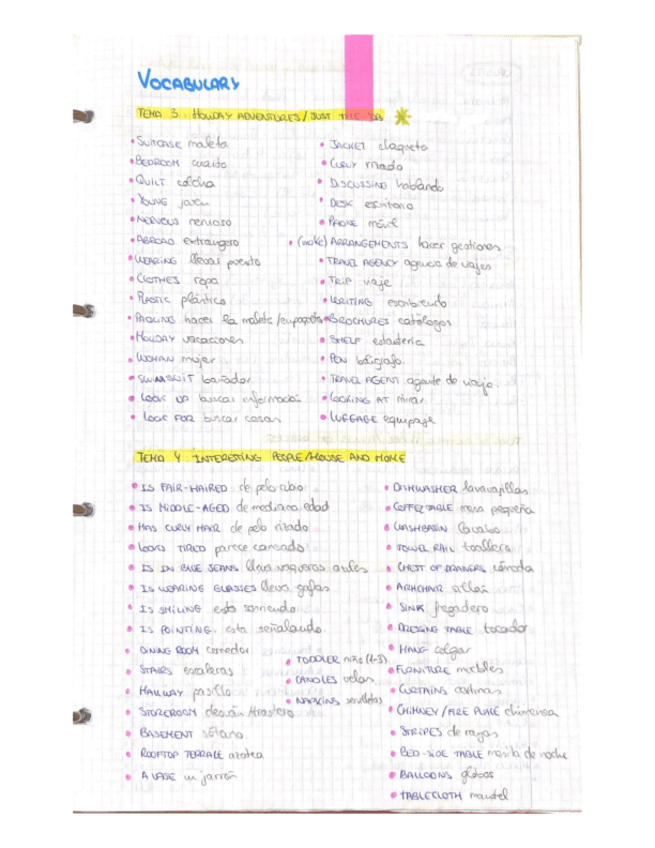 VOCABULARY
TEMA 3 HOLIDAY ADVENTURES / JUST THE JOB
• SUITCASE maleta
• BEDROOM cuarto
• QUILT colcha
• YOUNG joven
• NERVOUS nervioso
• ABROAD extrangero
• WEARING llevar puesto
• CLOTHES ropa
• PLASTIC plástico
• PACKING hacer la maleta /empaquetar
• HOLIDAY vacaciones
• WOMAN mujer
• SWIMSUIT bañador
• LOOK UP buscar información
• LOOK FOR buscar cosas
• JACKET chaqueta
• CURLY rizado
• DISCUSSING hablando
• DESK escritorio
• PHONE móvil
• (make) ARRANGEMENTS hacer gestiones
• TRAVEL AGENCY agencia de viajes
• TRIP viaje
• WRITING escribiendo
• BROCHURES catálogos
• SHELF estantería
• PEN bolígrafo
• TRAVEL AGENT agente de viajes
• LOOKING AT mirar
• LUGGAGE equipaje
TEMA 4 INTERESTING PEOPLE/HOUSE AND HOME
• IS FAIR-HAIRED de pelo rubio
• IS MIDDLE-AGED de mediana edad
• HAS CURLY HAIR de pelo rizado
• LOOKS TIRED parece cansado
• IS IN BLUE JEANS lleva vaqueros azules
• IS WEARING GLASSES lleva gafas
• IS SMILING está sonriendo
• IS POINTING. está señalando
• DINING ROOM comedor
• STAIRS escaleras
• HALLWAY pasillo
• STOREROOM desván/trastero
• BASEMENT sótano
• ROOFTOP TERRACE azotea
• A VASE un jarrón
• TODDLER niño (1-3)
• CANDLES velas
• NAPKINS servilletas
• DISHWASHER lavavajillas
• COFFE TABLE mesa pequeña
• WASHBASIN lavabo
• TOWEL RAIL toallero
• CHEST OF DRAWERS cómoda
• ARMCHAIR sillón
• SINK fregadero
• DRESSING TABLE tocador
• HANG colgar
• FURNITURE muebles
• CURTAINS cortinas
• CHIMNEY /FIRE PLACE chimenea
• STRIPES de rayas
• BED-SIDE TABLE mesita de noche
• BALLOONS globos
• TABLECLOTH mantel